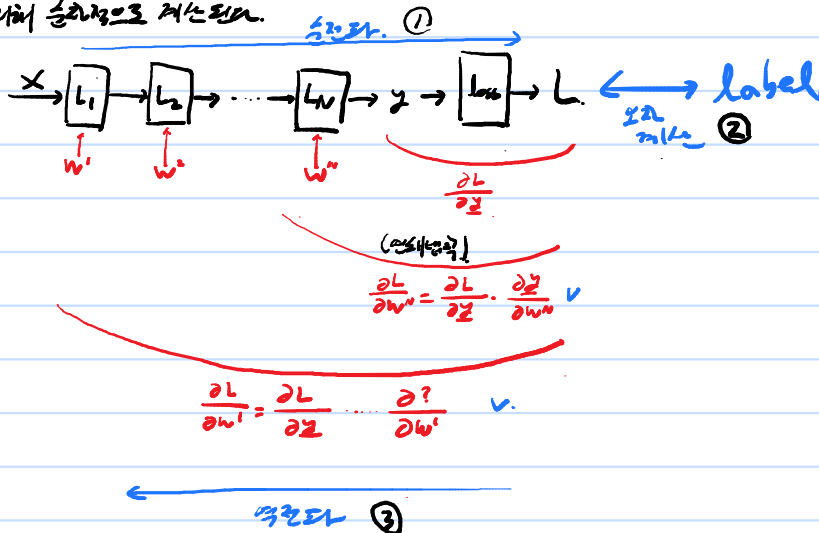 순차적으로 계산된다.
순전파. ①
X → L₁ → L₂ → ⋯ → L_N → y → loss → L. ↔ label
오차 계산 ②
W¹ W² Wᴺ
∂L/∂y
(연쇄법칙)
∂L/∂wᴺ = ∂L/∂y · ∂y/∂wᴺ ✓
∂L/∂w¹ = ∂L/∂y ⋯ ∂?/∂w¹ ✓.
역전파 ③